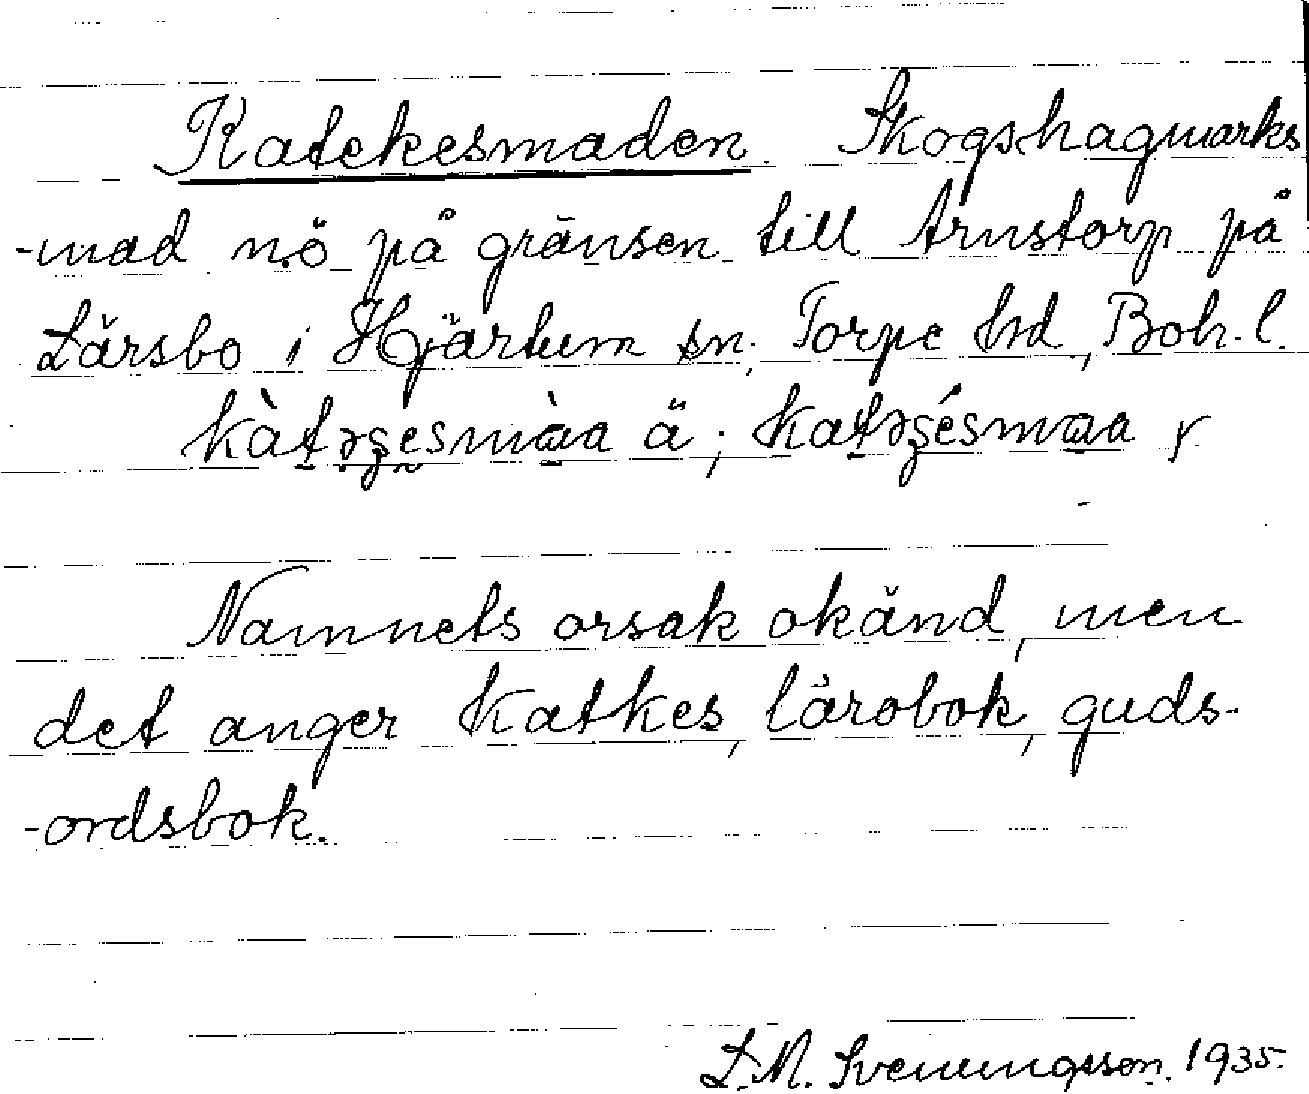 Katekesmaden. Skogshagmarks
-mad nö på gränsen till Arnstorp på
Lärsbo i Hjärtum sn, Torpe hd, Boh. l.
kàtə̣ʂesmàa ä; katəʂésmaa r
Namnets orsak okänd, men
det anger Katkes, lärobok, guds-
-ordsbok.
L.M. Svenungsson. 1935.